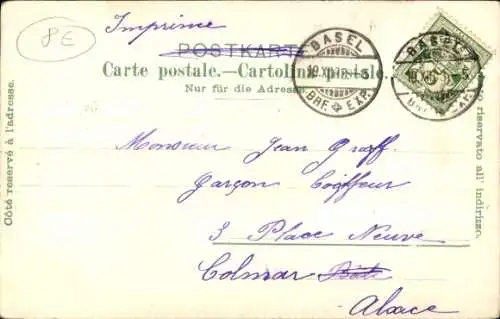 8E
Imprimé
POSTKARTE
Carte postale.—Cartolina postale.
Nur für die Adresse
BASEL
BRF. EXP.
BASEL
Côté reservé à l'adresse.
Monsieur Jean Graff
Garçon Coiffeur
3 Place Neuve
Colmar
Alsace
riservato all' indirizzo.